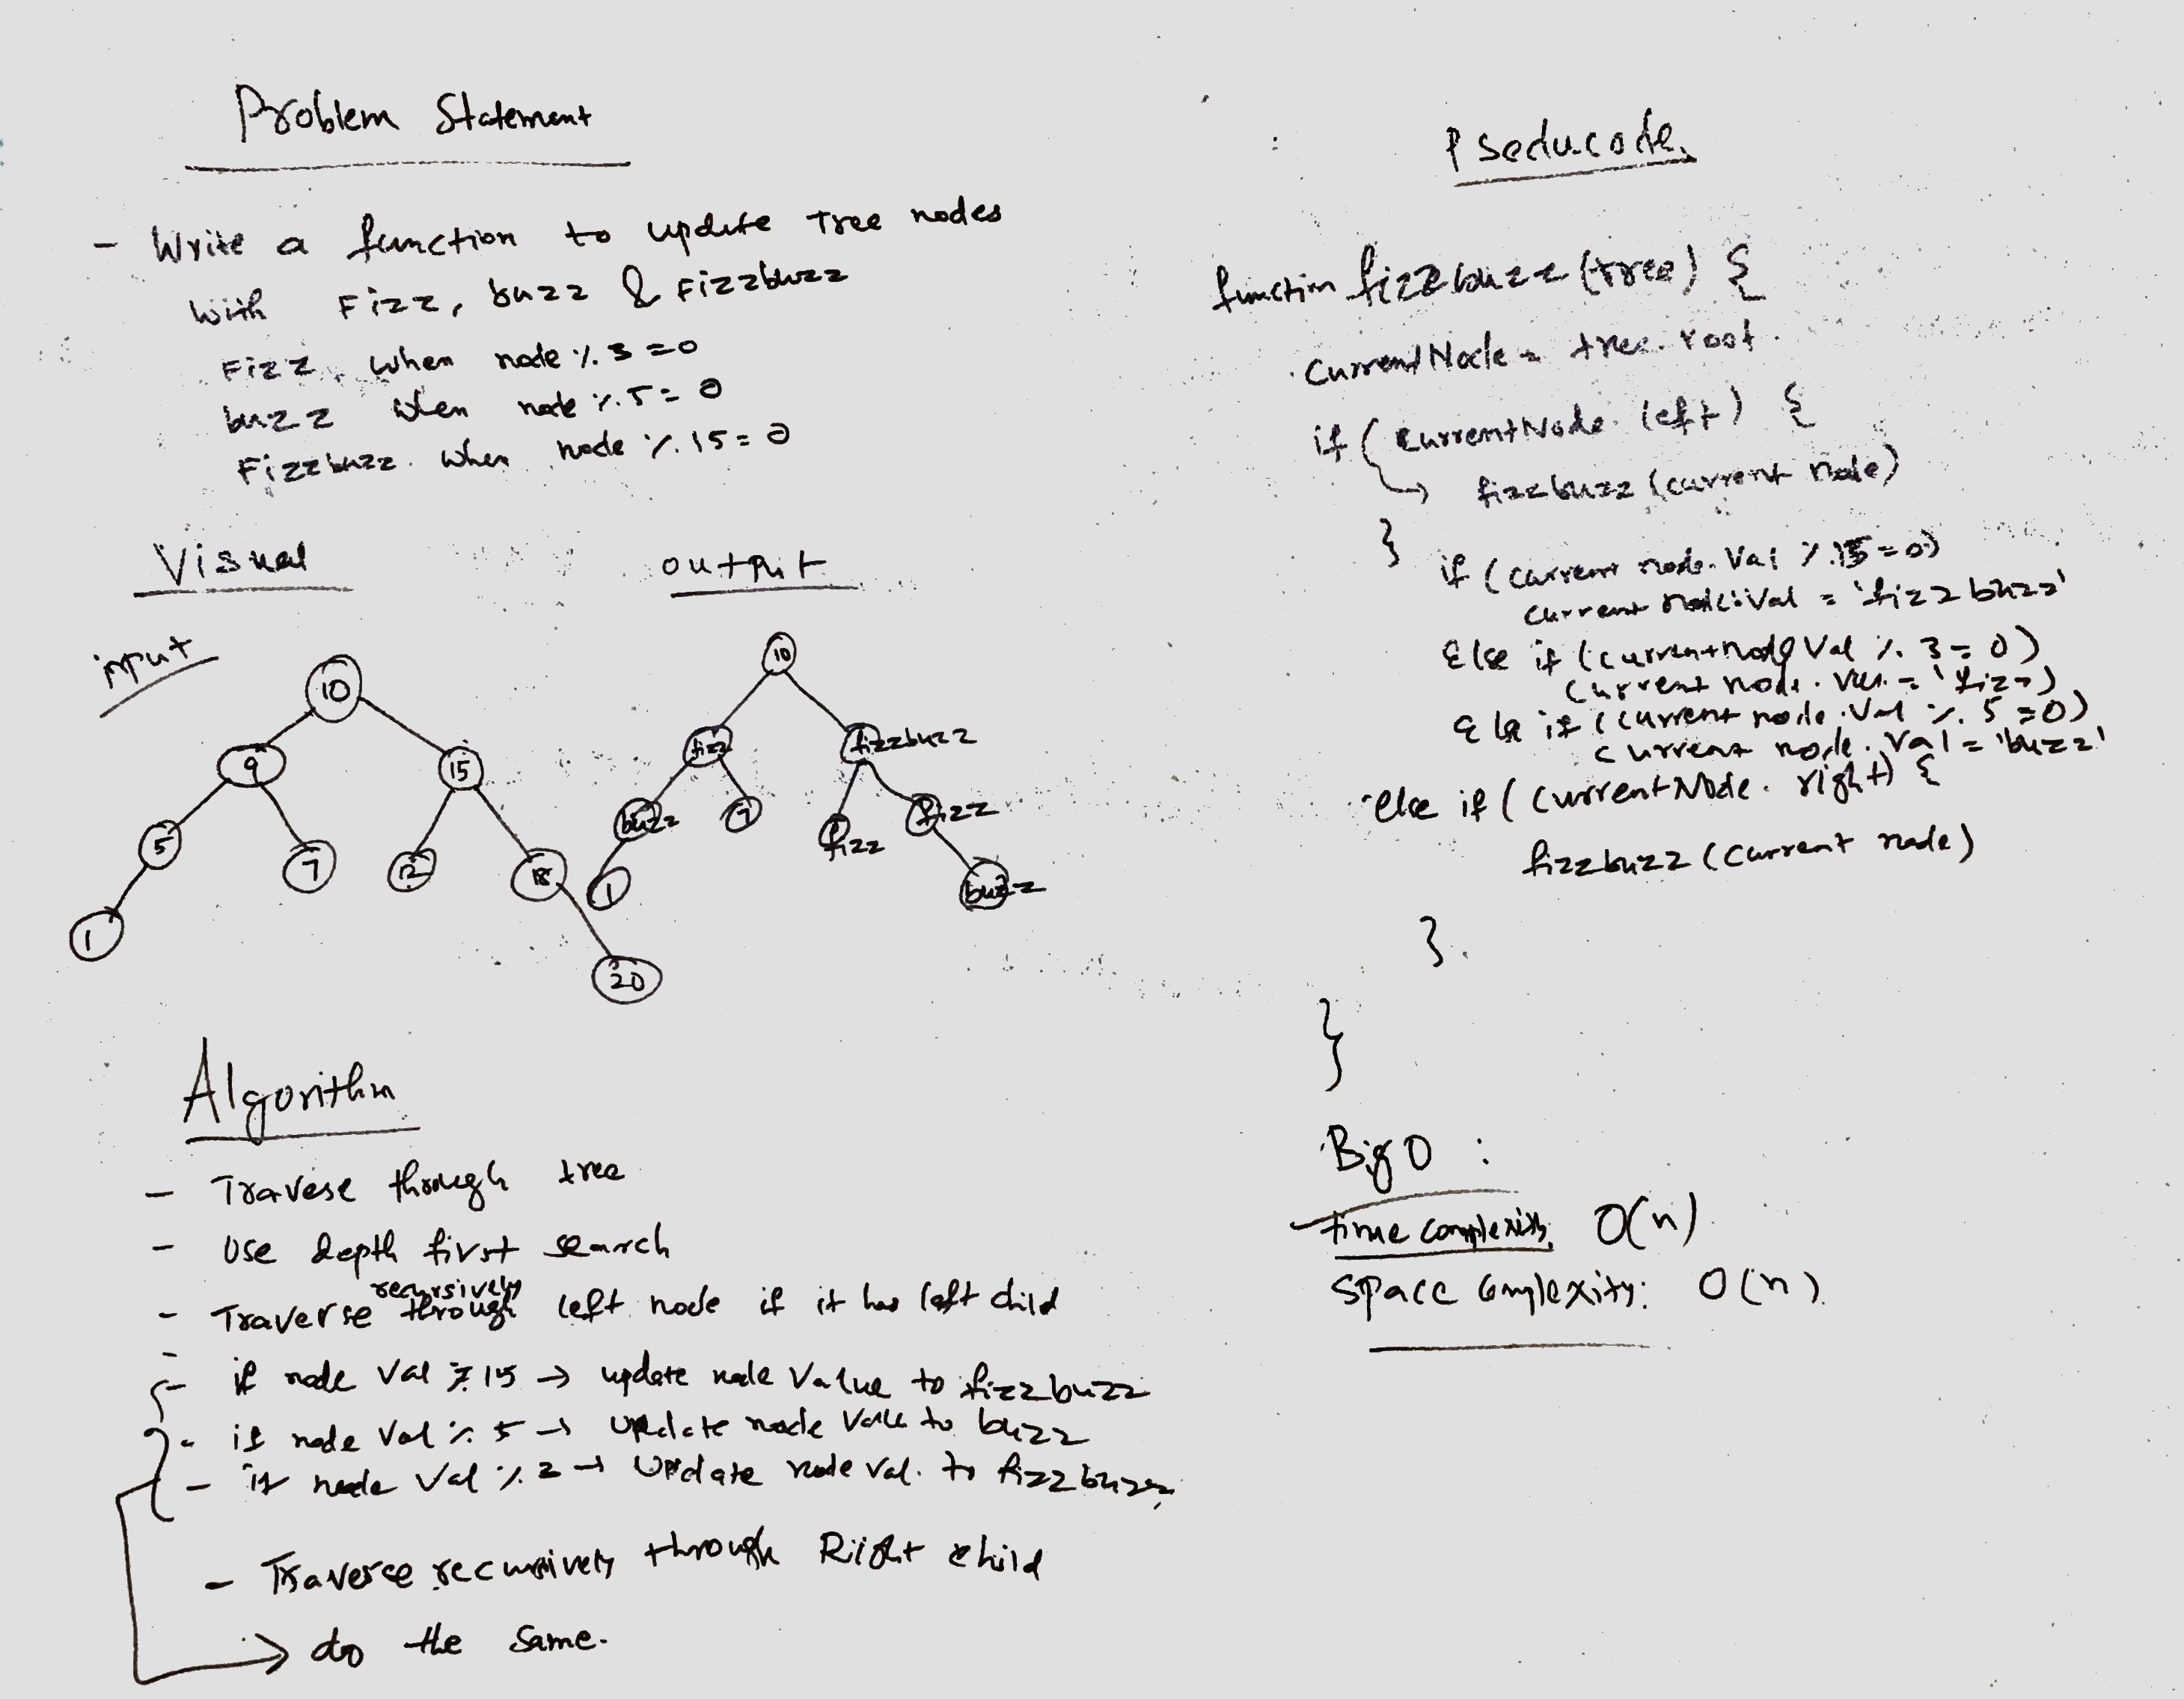 Problem Statement
- Write a function to update Tree nodes
with Fizz, buzz & Fizzbuzz
Fizz when node % 3 = 0
buzz when node % 5 = 0
Fizzbuzz when node % 15 = 0
Visual
output
input
10
9
15
5
7
12
18
1
20
10
fizz
fizzbuzz
buzz
7
fizz
fizz
1
buzz
Algorithm
- Travese through tree
- Use depth first search
recursively
- Traverse through left node if it has left child
-
- if node val % 15 → update node value to fizzbuzz
- if node val % 5 → update node value to buzz
- if node val % 2 → update node val. to fizzbuzz
- Traverse recursively through Riight child
→ do the same.
Pseducode
function fizzbuzz (tree) {
CurrentNode = tree.root
if (currentNode.left) {
→ fizzbuzz (current node)
}
if (current node.val % 15 = 0)
current node.val = 'fizzbuzz'
Else if (current node val % 3 = 0)
current node.val = 'fizz)
Else if (current node.val % 5 = 0)
current node.val = 'buzz'
else if (currentNode.right) {
fizzbuzz (current node)
}
}
Big O :
time complexity O(n)
Space Complexity: O(n)